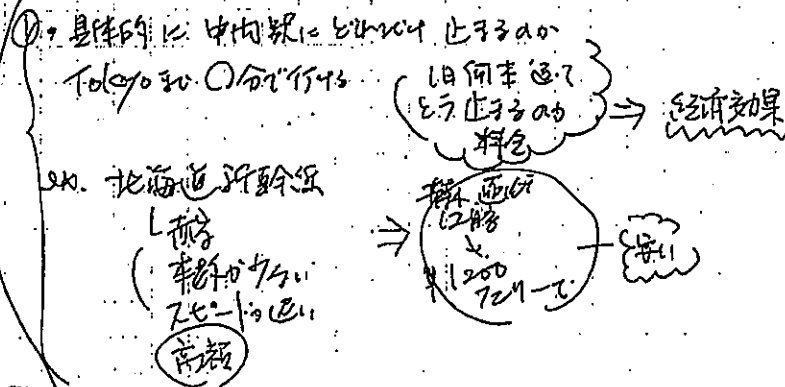 ① ・具体的に 中間駅に どれだけ 止まるのか
Tokyoまで ○分で行ける
1日何本通って
どう止まるのか
料金
⇒ 経済効果
ex. 北海道新幹線
本数が少ない
スピードも遅い
高額
⇒
¥1200
フェリーで
安い